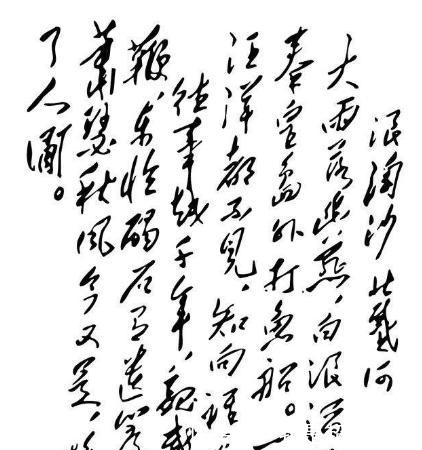 浪淘沙 北戴河
大雨落幽燕，白浪滔
秦皇岛外打鱼船。一
汪洋都不见，知向谁
往事越千年，魏武
鞭，东临碣石有遗篇
萧瑟秋风今又是，换
了人间。